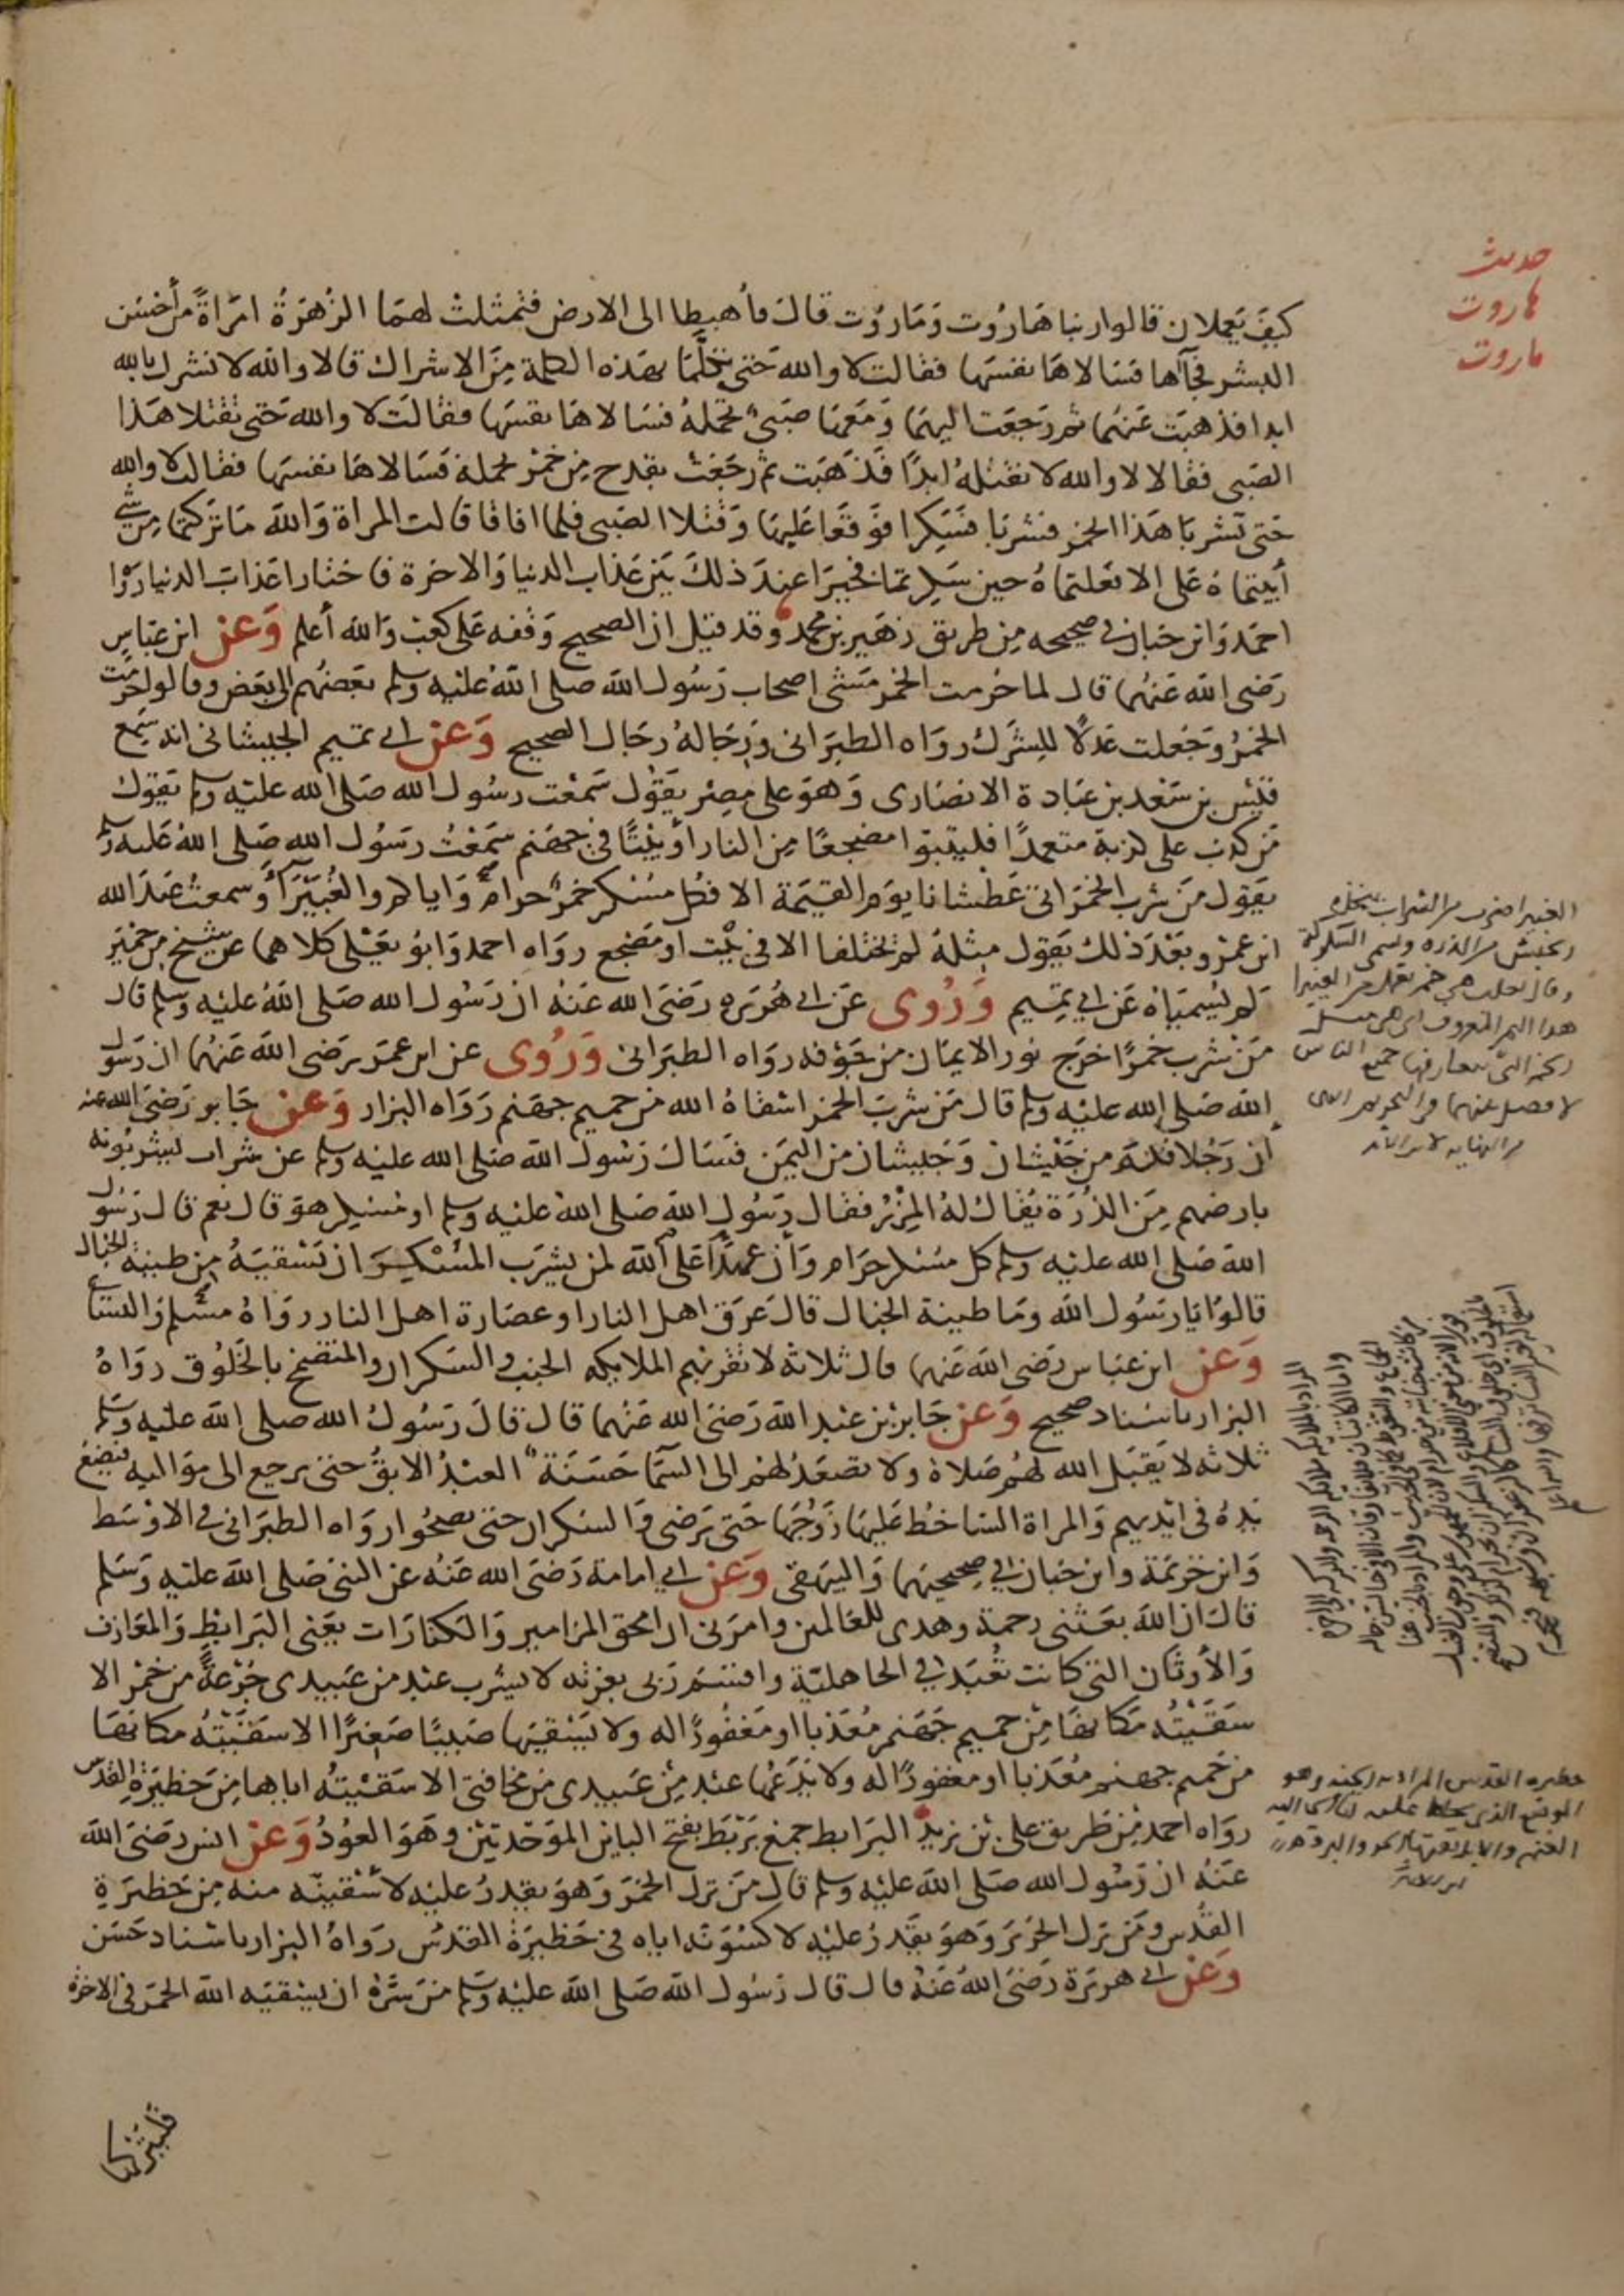 حديث
هاروت
ماروت
كيف يعملان قالوا ربنا هَاروُت وَمَارُوت قال فأهبطا الى الارض فتمثلت لهما الزُهَرَةُ امرَاةً من أحْسَن
البشر فجآاها فسَالاهَا نفسَها فقالت لا والله حَتى تتكلَّمَا بهَذه الكلمة مِنَ الاشراك قالا والله لا نشرك بالله
ابدا فذهبَت عَنهُما ثم رَجَعَت اليهمَا وَمَعَها صَبىٌ تحملهُ فسَالاهَا نفسَها فقالَت لا والله حَتى تقتلا هَذا
الصَبى فقالا لا والله لا نقتلهُ ابدًا فَذَهَبَت ثم رَجَعَت بقدح مِن خَمْر تحمله فسَالاهَا نفسَها فقالت لا والله
حَتى تشربَا هَذا الخمر فشربَا فسَكِرا فوَقعَا عَليهَا وَقتَلا الصَبى فلما افاقا قالت المراة وَالله مَا تركتما مِن شيء
أبيتمَاهُ عَلى الا فعَلتماهُ حين سَكِرتما فخيرَا عندَ ذلكَ بَين عَذاب الدنيا وَالاخرة فاختارا عَذابَ الدنيا رَوَاه
احمَد وَابن حبان في صحيحه مِن طريق زهَير بن محمد وقد قيل ان الصحيح وَقفه عَلى كعْب وَالله أعلم وَعَن ابن عبَاس
رَضى الله عَنهُما قال لما حُرمت الخمر مَشَى اصحاب رَسُول الله صلى الله عَليه وسلم بَعضُهم الى بَعض وقالوا حُرمَت
الخمرُ وَجُعلت عَدلاً للشرك رواه الطبَرَانى وَرجَالهُ رجَال الصحيح وَعَن ابي تميم الجيشانى انه سَمع
قَيْس بن سَعْد بن عبَادة الانصَارى وَهوَ على مِصْر يَقول سَمعْت رسُول الله صَلى الله عليه وسلم يَقول
مَن كذب على كذبة متعمدًا فليتبوا مضجعًا مِن النار أو بَيْتًا في جهَنم سَمعْتُ رسُول الله صَلى الله عَليه وسلم
يقول مَن شرب الخمرَ اتى عَطشانا يوم القيمَة الا فكل مسْكر خمرٌ حرامٌ وَاياكم والغُبَيْرَآءُ وسمعتُ عَبدَ الله
ابن عَمرو بَعْدَ ذلك يَقول مثلهُ لم يختلفا الا في بَيْت او مَضجع رواه احمد وَابوُ يَعْلى كلاهما عن شيخ من حمْيَر
لم يُسميَاهُ عَن ابي تميم وَرُوى عَن ابي هُرَيره رَضىَ الله عَنهُ ان رَسُول الله صَلى الله عَليه وسلم قال
مَن شرب خَمرًا خرَج نور الايمَان من جَوْفه رواه الطبَرَانى وَرُوى عن ابن عمَر رَضى الله عَنهُما ان رَسُول
الله صَلى الله عَليه وسلم قال مَن شربَ الخمر اسقاهُ الله من حميم جهَنم رَوَاه البزار وَعَن جَابر رَضىَ الله عنه
أن رَجُلا قدم من جَيْشان وَجَيشان من اليمَن فسَال رَسُول الله صَلى الله عليه وسلم عن شراب يشربُونه
بارضهم مِن الذُرَة يُقال لهُ المِزْر فقال رَسُول الله صَلى الله عليه وسلم او مُسْكر هوَ قال نعم قال رَسُول
الله صَلى الله عليه وسلم كل مسْكر حَرام وَأن عهدًا عَلى الله لمن يشرَب المسْكر ان يسْقيَهُ من طينة الخبال
قالوُا يَا رسُول الله وَمَا طينة الخبال قال عَرَق اهل النار او عصَارة اهل النار روَاهُ مسْلم وَالنساي
وَعَن ابن عبَاس رَضى الله عَنهما قال ثلاثة لا تقربهم الملايكه الجنب والسَكران والمتضمخ بالخَلوُق روَاهُ
البزار باسناد صحيح وَعَن جَابر بن عَبد الله رَضىَ الله عَنهُما قال قالَ رَسُول الله صَلى الله عليه وسَلم
ثلاثة لا يَقبَل الله لهُم صَلاة ولا تصعَدُ لهُم الى السَمَا حَسَنَة العبْدُ الابقُ حتى يرجع الى موَاليه فيَضعُ
يَدهُ في ايْديهم وَالمراة السَاخطُ عَليهَا زَوْجُهَا حَتى يَرضى وَالسَكران حتى يصحُوا رواه الطبَرَانى في الاوْسَط
وَابن خزيمَة وابن حبان في صحيحيهما وَالبيهَقى وَعَن ابي امامة رَضىَ الله عَنهُ عن النبى صَلى الله عَليه وَسَلم
قال ان الله بعَثنى رحمة وهدى للعَالمين وامرَنى ان امحق المزامير وَالكنارَات يَعْنى البَرابط وَالمعَازف
وَالأوثَان التى كانت تُعْبَد في الجَاهليّة واقسَم رَبى بعزته لا يشرب عَبد من عَبيدى جُرْعَةً من خمْر الا
سَقَيْتُه مَكانهَا مِن حميم جَهنم مُعَذبا او مَغفُورًا له ولا يَسْقيهَا صَبيًا صَغيرًا الا سقيْتهُ مكانهَا
من حَميم جهنم مُعَذبا او مغفورًا له ولا يَدَعهُا عَبد مِن عَبيدى من مخافتى الا سَقيْتهُ اياها مِن حَظيرَة القدس
رواه احمد مِن طَريق على بن يزيد البَرابط جمع بَرْبَط بفتح الباين الموَحّدتيْن وهوَ العوُدُ وَعَن انس رَضىَ الله
عَنهُ ان رَسُول الله صَلى الله عَليه وسلم قال مَن ترك الخمرَ وَهوَ يقدرُ عليه لاسْقينّه منه مِن حَظيرَةِ
القُدْس ومَن ترك الحَريرَ وَهوَ يقدرُ عليْه لاكسُوَنّه اياه في حَظيرَة القدْس روَاهُ البزار باسْناد حَسَن
وَعَن ابي هريرَة رَضىَ الله عَنهُ قال قال رَسُول الله صَلى الله عَليه وسَلم مَن سَرّهُ ان يسْقيَه الله الخمرَ في الاخرة
فليتركها
الغبيرا ضرب من الشراب يتخذه
الحبش من الذره وتسمى السكركة
وقال ثعلب هي خمر تعمل من الغبيرا
هذا التمر المعروف اى هى مثل
الخمر التى يتعارفها جميع الناس
لا فصل بينهما في التحريم
من النهايه لابن الاثير
حظيره القدس المراد به الجنه وهو
الموضع الذى يحاط عليه لتاوى اليه
الغنم والابل يقيها الحر والبرد
ابن الاثير